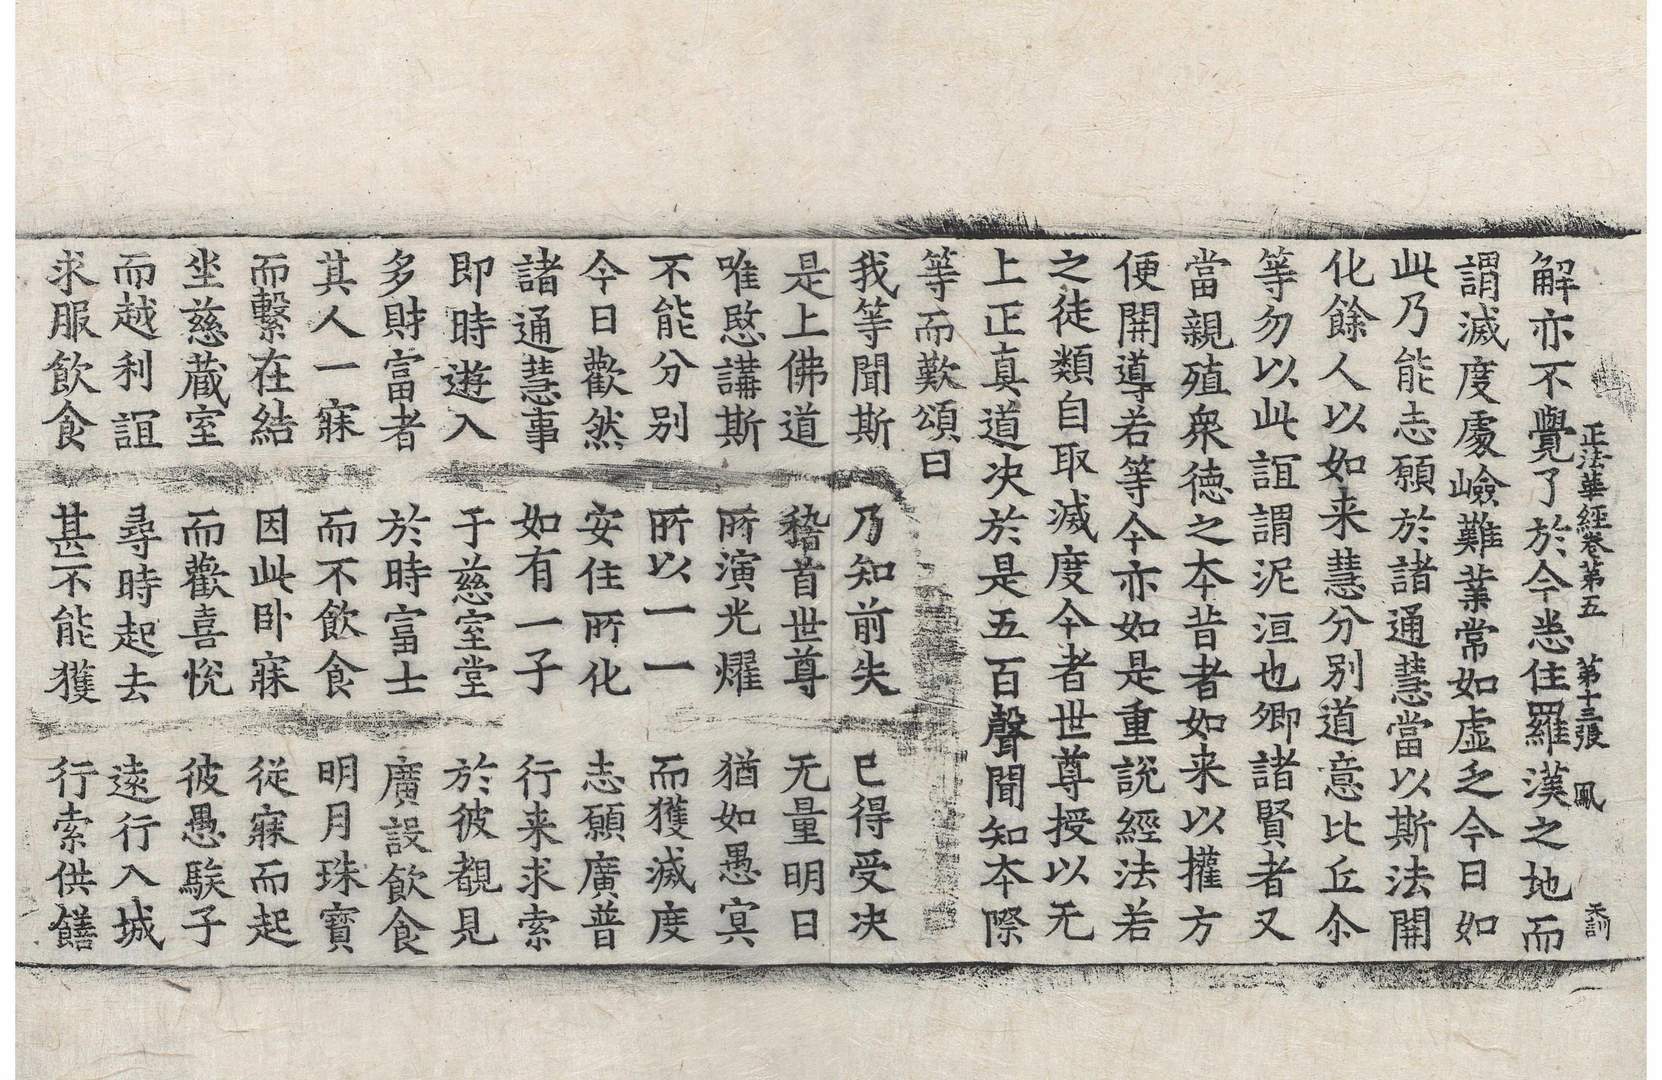 正法華經卷第五 第十三張 鳳 天訓
解亦不覺了於今悉住羅漢之地而
謂滅度處嶮難業常如虛乏今日如
此乃能志願於諸通慧當以斯法開
化餘人以如来慧分别道意比丘尒
等勿以此誼謂泥洹也卿諸賢者又
當親殖衆徳之夲昔者如来以權方
便開導若等今亦如是重說經法若
之徒類自取滅度今者世尊授以无
上正真道决於是五百聲聞知夲際
等而歎頌曰
我等聞斯 乃知前失 已得受决
是上佛道 稽首世尊 无量明目
唯愍講斯 所演光燿 猶如愚冥
不能分别 所以一一 而獲滅度
今日歡然 安住所化 志願廣普
諸通慧事 如有一子 行来求索
即時遊入 于慈室堂 於彼覩見
多財富者 於時富士 廣設飲食
其人一寐 而不飲食 明月珠寳
而繫在結 因此卧寐 従寐而起
坐慈藏室 而歡喜悅 彼愚騃子
而越利誼 尋時起去 遠行入城
求服飲食 甚不能獲 行索供饍